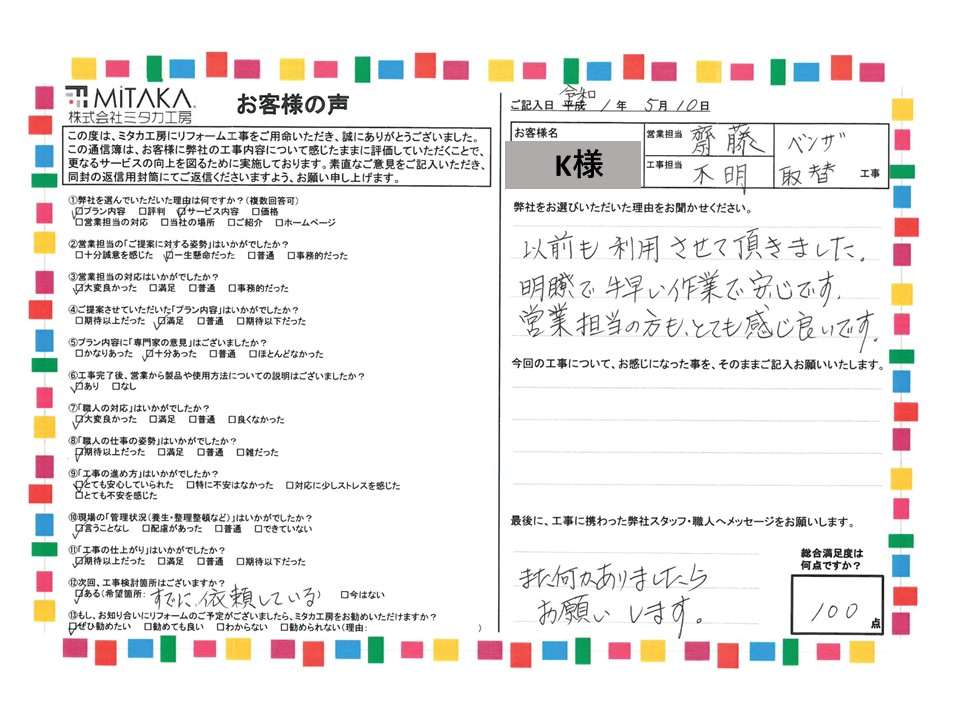 MiTAKA.
株式会社ミタカ工房
お客様の声
この度は、ミタカ工房にリフォーム工事をご用命いただき、誠にありがとうございました。
この通信簿は、お客様に弊社の工事内容について感じたままに評価していただくことで、
更なるサービスの向上を図るために実施しております。素直なご意見をご記入いただき、
同封の返信用封筒にてご返信くださいますよう、お願い申し上げます。
①弊社を選んでいただいた理由は何ですか？(複数回答可)
☑プラン内容 □評判 ☑サービス内容 □価格
□営業担当の対応 □当社の場所 □ご紹介 □ホームページ
②営業担当の「ご提案に対する姿勢」はいかがでしたか？
□十分誠意を感じた ☑一生懸命だった □普通 □事務的だった
③営業担当の対応はいかがでしたか？
☑大変良かった □満足 □普通 □事務的だった
④ご提案させていただいた「プラン内容」はいかがでしたか？
□期待以上だった ☑満足 □普通 □期待以下だった
⑤プラン内容に「専門家の意見」はございましたか？
□かなりあった ☑十分あった □普通 □ほとんどなかった
⑥工事完了後、営業から製品や使用方法についての説明はございましたか？
☑あり □なし
⑦「職人の対応」はいかがでしたか？
☑大変良かった □満足 □普通 □良くなかった
⑧「職人の仕事の姿勢」はいかがでしたか？
☑期待以上だった □満足 □普通 □雑だった
⑨「工事の進め方」はいかがでしたか？
☑とても安心していられた □特に不安はなかった □対応に少しストレスを感じた
□とても不安を感じた
⑩現場の「管理状況(養生・整理整頓など)」はいかがでしたか？
☑言うことなし □配慮があった □普通 □できていない
⑪「工事の仕上がり」はいかがでしたか？
☑期待以上だった □満足 □普通 □期待以下だった
⑫次回、工事検討箇所はございますか？
☑ある(希望箇所: すでに依頼している) □今はない
⑬もし、お知り合いにリフォームのご予定がございましたら、ミタカ工房をお勧めいただけますか？
☑ぜひ勧めたい □勧めても良い □わからない □勧められない(理由: )
令和
ご記入日 平成 1年 5月10日
お客様名
K様
営業担当 齋藤
工事担当 不明
ベンザ
取替 工事
弊社をお選びいただいた理由をお聞かせください。
以前も利用させて頂きました。
明瞭で手早い作業で安心です。
営業担当の方も、とても感じ良いです。
今回の工事について、お感じになった事を、そのままご記入お願いいたします。
最後に、工事に携わった弊社スタッフ・職人へメッセージをお願いします。
また何かありましたら
お願いします。
総合満足度は
何点ですか？
100点